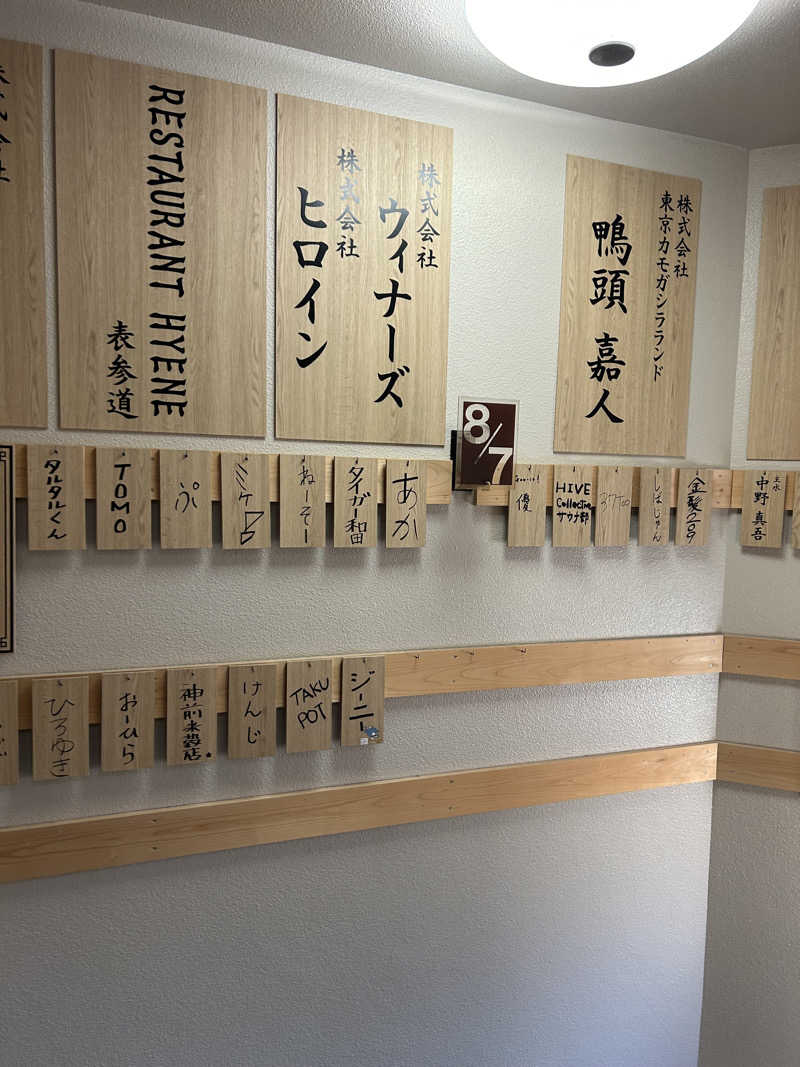 株式会社
RESTAURANT HYENE
表参道
株式会社
ウィナーズ
株式会社
ヒロイン
株式会社
東京カモガシラランド
鴨頭 嘉人
8/7
タルタルくん
TOMO
ぷ
ねーそー
タイガー和田
あか
優
HIVE
Collective
サウナ部
しばじゅん
金髪209
主水
中野 真吾
ひろゆき
おーひら
神前米穀店
けんじ
TAKU
POT
ジーニー